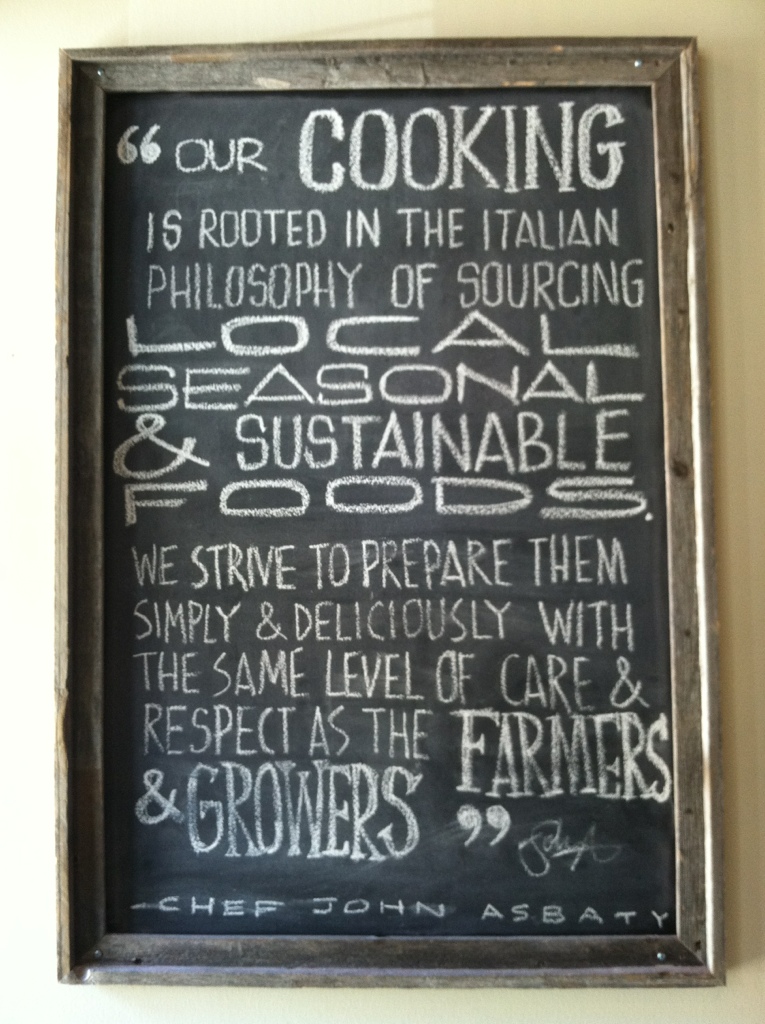 “ OUR COOKING
IS ROOTED IN THE ITALIAN
PHILOSOPHY OF SOURCING
LOCAL
SEASONAL
& SUSTAINABLE
FOODS.
WE STRIVE TO PREPARE THEM
SIMPLY & DELICIOUSLY WITH
THE SAME LEVEL OF CARE &
RESPECT AS THE FARMERS
& GROWERS ”
-CHEF JOHN ASBATY